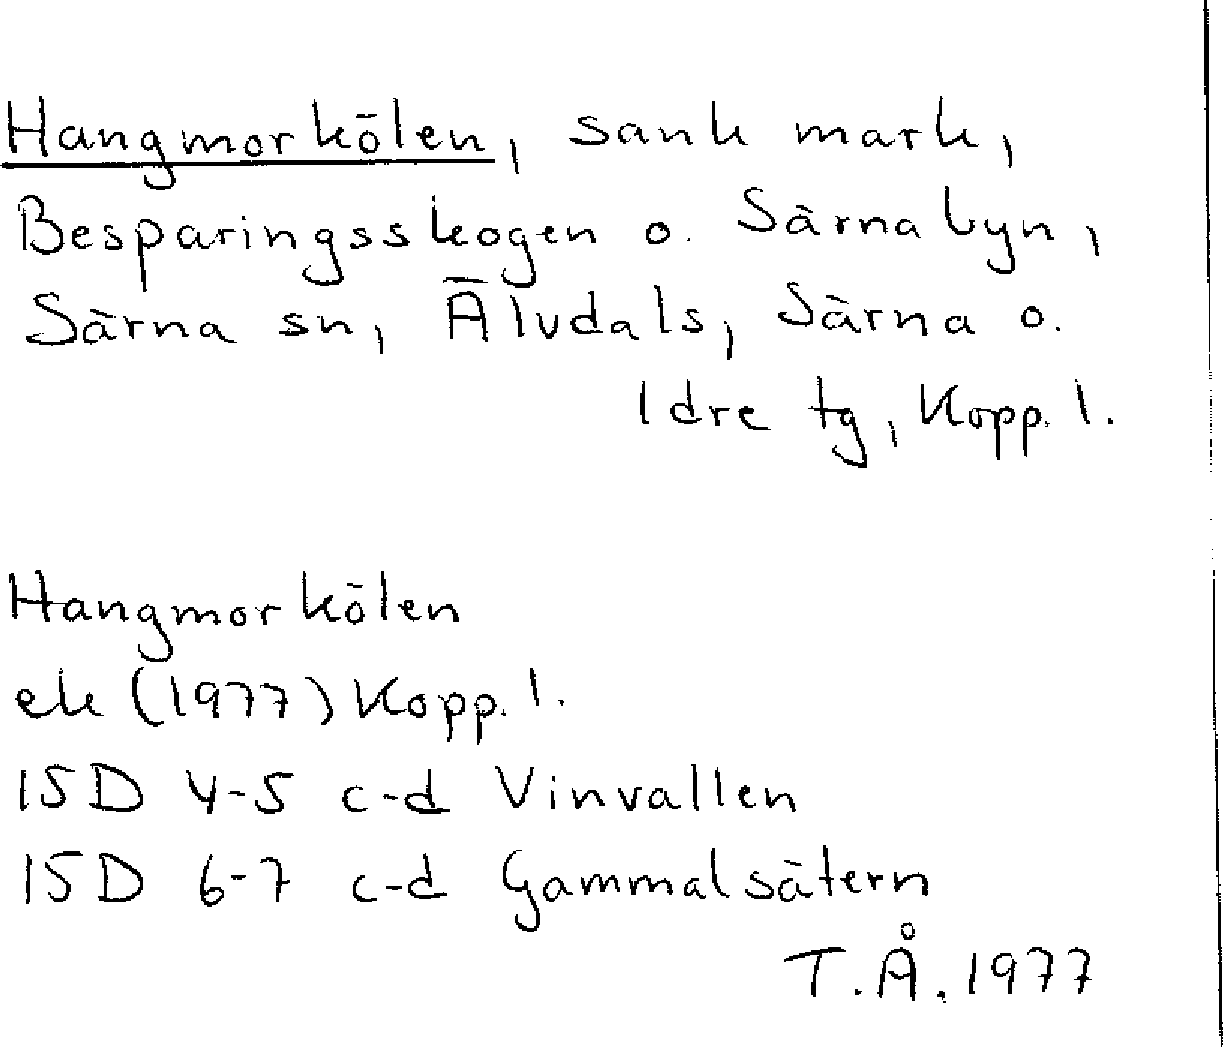 Hangmorkölen, sank mark,
Besparingsskogen o. Särnabyn,
Särna sn, Älvdals, Särna o.
Idre tg, Kopp. l.
Hangmorkölen
ek (1977) Kopp. l.
15D 4-5 c-d Vinvallen
15D 6-7 c-d Gammalsätern
T.Å. 1977